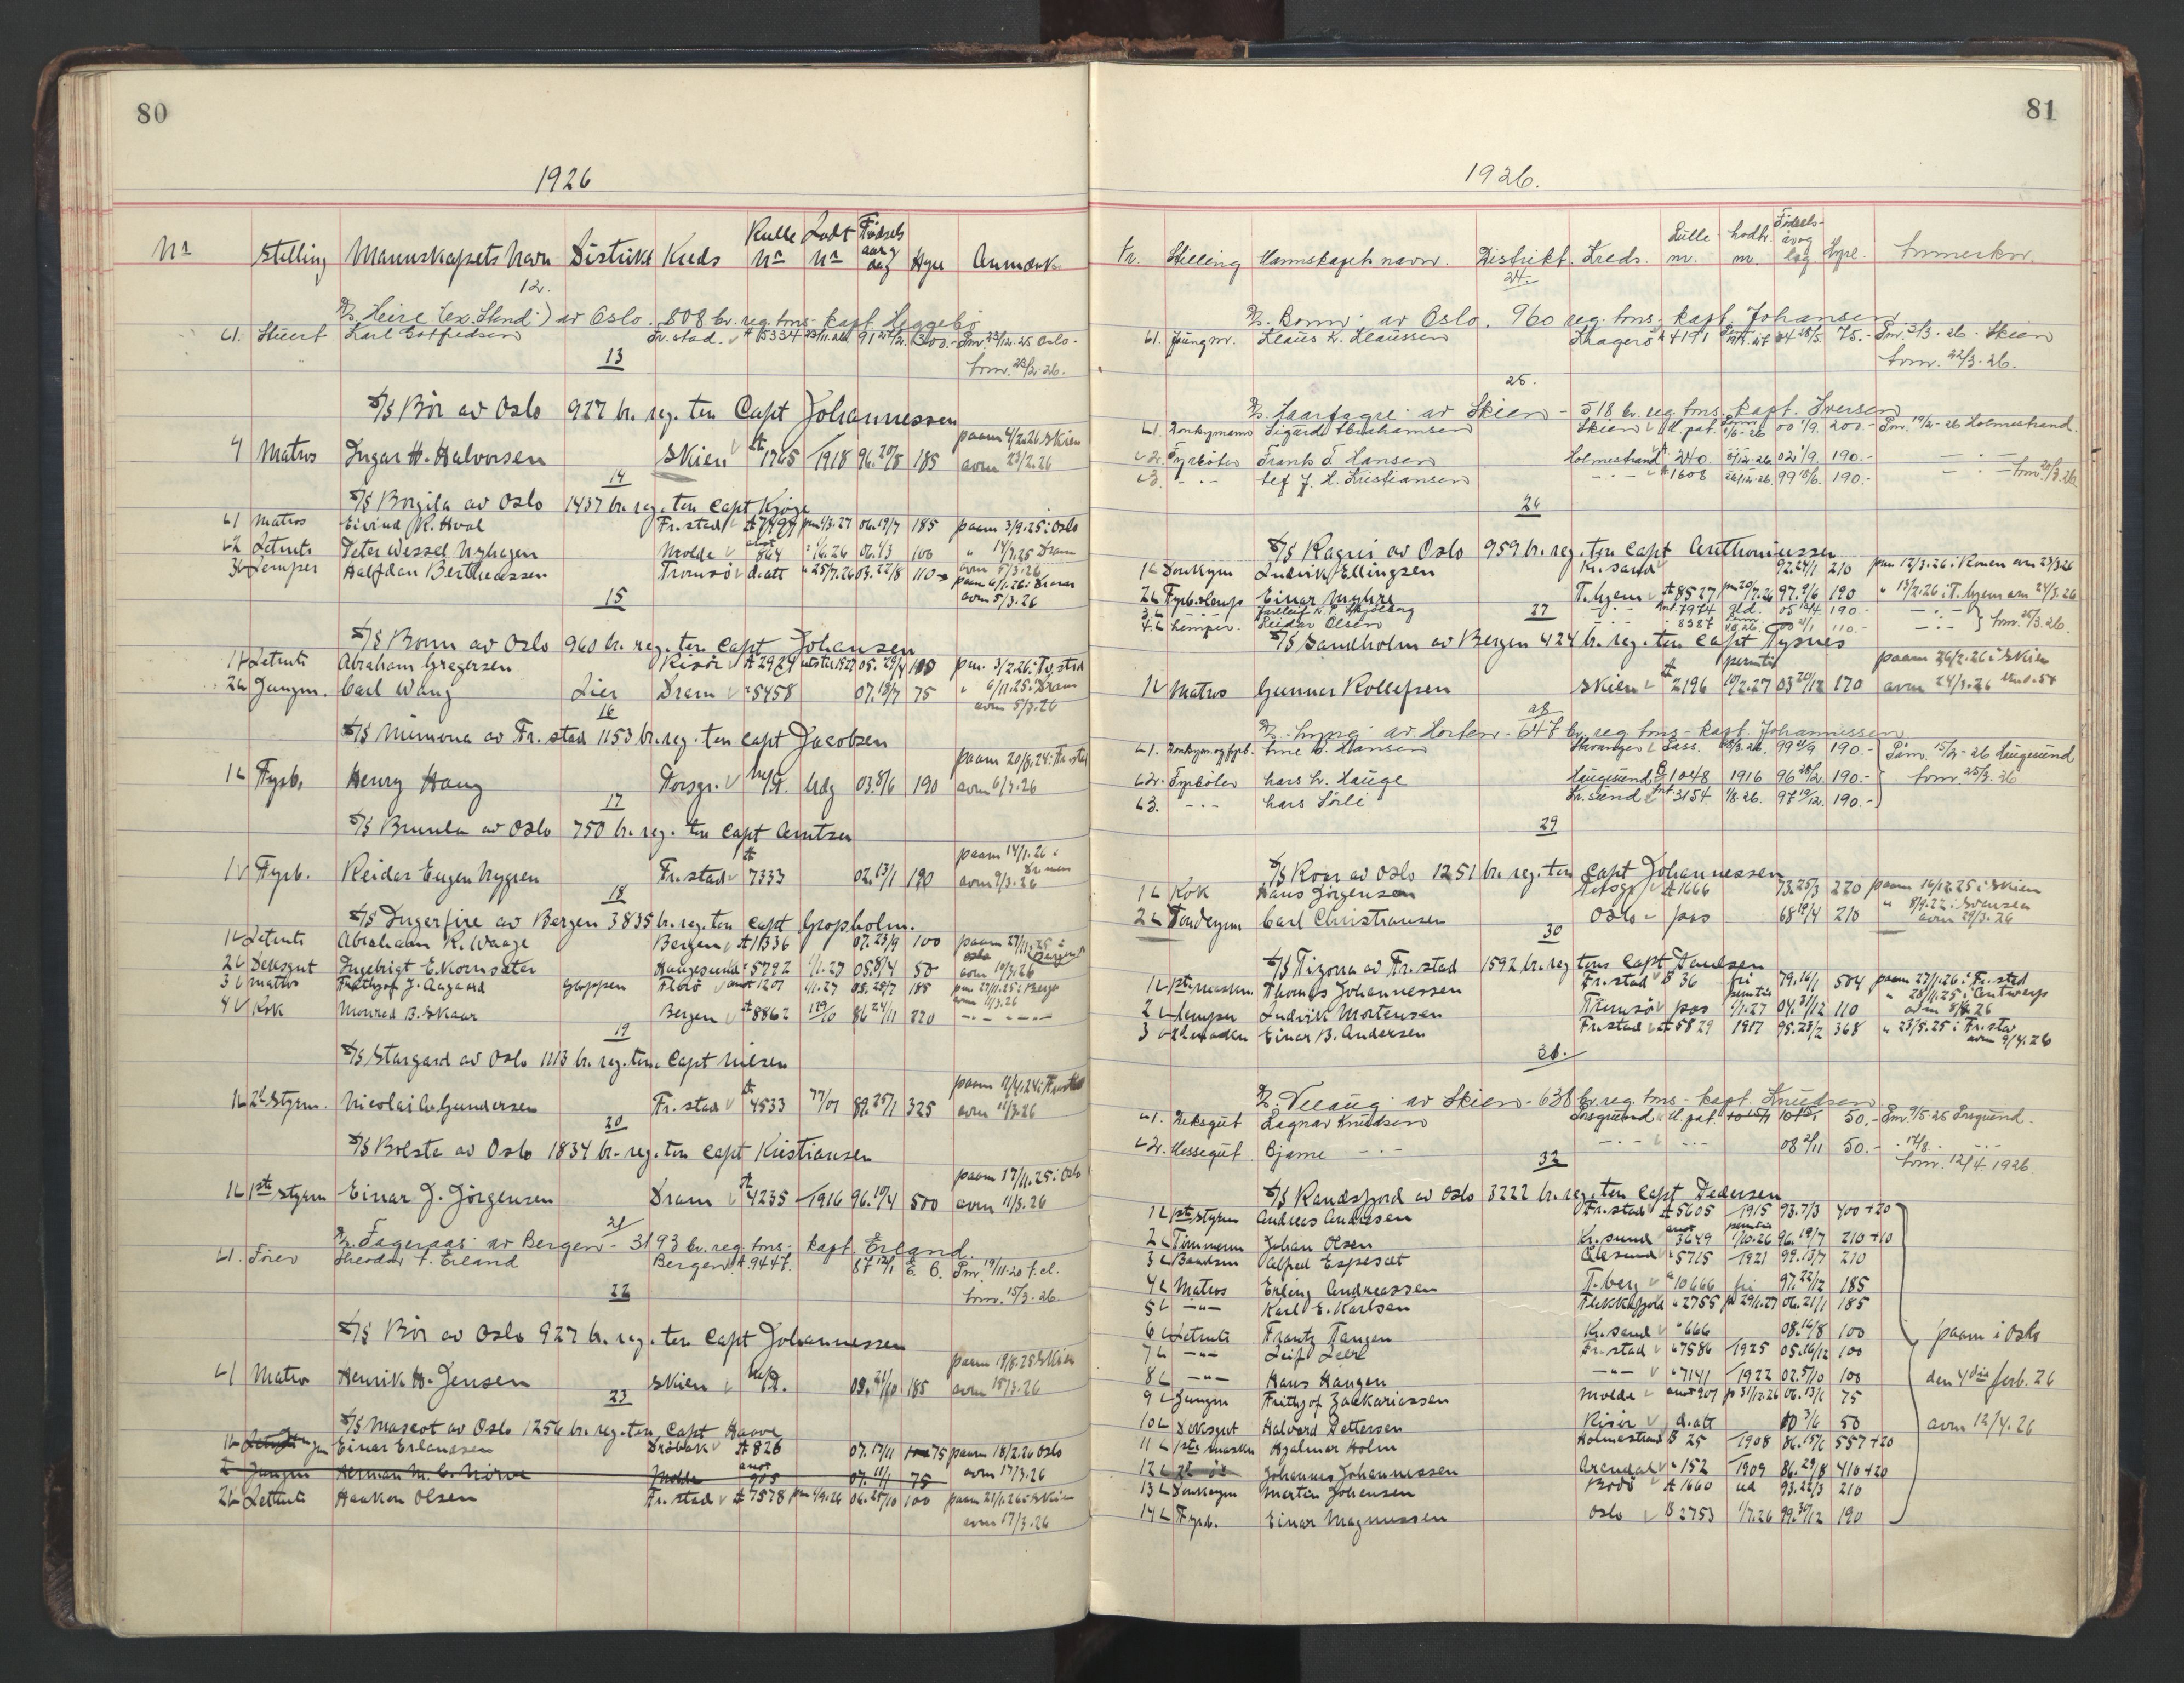 80
1926
Nr Stilling Mannskapets Navn Distrikt Kreds Rulle Nr Lodt Nr Fødsels aar og dag Hyre Anmærk
12.
D/S Heire (ex. Stand) av Oslo. 808 br. reg. tons - kapt. Heggebø
1. Stuert Karl Gotfredsen Fr.stad. A 5334 91 21/12. 300.- Pm. 23/12.25 Oslo -
13 frm. 23/2.26.
S/S Bör av Oslo 927 br. reg. ton Capt Johannessen
1 Matros Ingar H. Halvorsen Skien A 1765 1918 96. 20/8 185 paam 4/2.26 Skien
avm 23/2.26
14
S/S Borgila av Oslo 1437 br. reg. ton Capt Kjøge
1 Matros Eivind R. Hval Fr.stad A 7497 pm 4/3.27 06.19/7 185 paam 3/9.25 i Oslo
2 Letmts Peter Wessel Nyhagen Molde anot 864 1/6.26 06.4/3 100 " 14/7.25 Dram
3 Lemper Halfdan Bertheussen Tromsö d.att " 25/7.26 03.22/8 110 avm 5/3.26
paam 6/1.26 i Dram
avm 5/3.26
15
S/S Bonn av Oslo 960 br. reg. ton Capt Johansen
1 Letmts Abraham Gregersen Risör A 2929 05. 29/4 100 pm. 3/2.26 i Fr. stad
2 Jungm. Carl Wang Lier Dram " 5458 07.18/7 75 " 6/11.25 i Dram
avm 5/3.26
16
S/S Mimona av Fr.stad 1153 br. reg. ton Capt Jacobsen
1 Fyrb. Henry Haug Porsgr. Udg 03.8/6 190 paam 20/8.24 i Fr.stad
avm 6/3.26
17
S/S Brunla av Oslo 750 br. reg. ton Capt Arntsen
1 Fyrb. Reidar Eugen Nygren Fr.stad A 7333 02.13/1 190 paam 14/1.26 i Drmen
avm 9/3.26
18
S/S Ingerfire av Bergen 3835 br. reg. ton Capt Gropholm.
1 Letmts Abraham K. Waage Bergen A 11336 07.23/9 100 paam 27/11.25 i Oslo
2 Deksgut Ingebrigt E. Kornseter Haugesund " 5792 1/1.27 05.8/4 50 avm 10/3.26
3 Matros Frithjof J. Aagaard Gloppen Florö anot 1201 1/1.27 05. 25/7 185 pm 27/11.25 i Bergen
avm 11/3.26
4 Kok Monrad B. Skaar Bergen A 8862 86 24/11 220 -"- -"-
19
S/S Stargard av Oslo 1113 br. reg. ton Capt Nilsen
1 2d Styrm. Nicolai A. Gundersen Fr.stad A 4533 77/07 89. 25/1 325 paam 11/4.24 i Fr.stad
avm 11/3.26
20
S/S Bolsta av Oslo 1834 br. reg. ton Capt Kristiansen
1 1ste Styrm Einar J. Jörgensen Dram A 4235 1916 96.10/4 500 paam 17/11.25 i Oslo
avm 11/3.26
21
D/S Fageraas av Bergen - 3193 br. reg. tons - kapt. Erland.
1. Förer Theodor F. Erland Bergen. A. 9447. 87 12/1 E. 6. Pm. 19/11-20 f.cl.
22 frm. 15/3-26.
S/S Bör av Oslo 927 br. reg. ton Capt Johannessen
1 Matros Henrik H. Jensen Skien 09. 21/10 185 paam 19/8.25 Skien
avm 15/3.26
23
S/S Mascot av Oslo 1256 br. reg. ton Capt Haave
1 Jungm Einar Erlandsen Dröbak A 826 07. 17/11 75 paam 18/2.26 Oslo
Jungm Herman M. C. Nörve Molde anot 905 07. 11/1 75 avm 17/3.26
2 Letmts Haakon Olsen Fr.stad A 7578 pm 4/9.26 06. 25/10 100 paam 21/1.26 i Skien
avm 17/3.26
81
1926.
Nr. Stilling Mannskapets navn. Distrikt. Kreds. Rulle nr. Lodtr. nr. Fødsels- år og dag Hyre. Anmerkn.
24.
D/S Bonn av Oslo. 960 reg. tons - kapt. Johansen
1. Jüngm. Klaus K. Klaussen Kragerø A 4191 04 28/5. 75.- Pm. 3/3-26 - Skien
frm. 22/3-26.
25.
D/S Haarfagre av Skien - 518 br. reg. tons. kapt. Iversen
1. Donkymann Sigurd Abrahamsen Skien d. pat. 1/6-26 00 1/9. 200.- Pm. 19/2-26 Holmestrand.
2. Fyrböter Frank F. Hansen Holmestrand 240 02 1/9. 190.- - . -
3. - . - Leif J. H. Kristiansen - . - 1608 26/12-26. 99 18/6. 190.- - . - frm. 20/3.26
26
S/S Ragni av Oslo 959 br. reg. ton Capt Anthoniussen
1 Donkym Ludvik Ellingsen Kr.sand 92.24/1 210 pm 12/3.26 i Rouen avm 24/3 26
2 Fyrb. Lemp Einar Myhre T.hjem A 8527 pm 20/7.26 97.9/6 190 " 13/2.26 i T.hjem avm 24/3.26
3 - . - Fartein K. P. Skjölberg - . - 7974 gld. 05 12/4 190.- - . -
4 Lemper. Reidar Olsen - . - 8387 00 21/1 110.- - . - } frm. 25/3.26
27
S/S Sandholm av Bergen 424 br. reg. ton Capt Tysnes
1 Matros Gunnar Rollefsen Skien A 2196 permtir 10/2.27 03 20/12 170 paam 26/2.26 i Skien
avm 24/3.26
28
D/S Lynga av Horten - 647 br. reg. tons - kapt. Johannessen
1. Donkym. og fyrb. Arne W. Hansen Stavanger Lass. 99 21/9 190.- Påm. 15/2-26 Haugesund
2. Fyrböter Lars L. Hauge Haugesund B 1048 1916 96 28/2. 190.- frm 25/3.26
3. - . - Lars Sörli Kr.sund Ant 3154 1/8-26. 97 19/12. 190.-
29
S/S Roar av Oslo 1251 br. reg. ton Capt Johannessen
1 Kok Hans Jörgensen A 1666 73.25/3 220 paam 16/12.25 i Skien
2 Donkeym Carl Christiansen Oslo pas 68 19/4 210 " 8/9.22 i Svensea
avm 29/3.26
30
S/S Tizona av Fr.stad 1592 br. reg tons Capt Paulsen
1 1ste maskn. Thomas Johannessen Fr.stad B 36 fri 79.16/1 504 paam 27/1.26 i Fr.stad
2 Lemper Ludvik Mortensen Tromsö pas permtir 1/1.27 04. 31/12 110 " 28/11.25 i Antwerp
avm 8/4.26
3 2d maskn Einar B. Andersen Fr.stad A 5829 1917 95.23/2 368 " 23/5.25 i Fr.stad
avm 9/4.26
31.
D/S Veeaug av Skien - 638 br. reg. tons - kapt. Knudsen
1. Deksgut Ragnar Knudsen Porsgrund d. pat. 50.- Pm. 9/5-25 Porsgrund.
2. Messegut Bjarne - . - - . - - . - 08 21/11 50.- - 14/8. - . -
frm. 12/4 1926.
32
S/S Randsfjord av Oslo 3222 br. reg. ton Capt Pedersen
1 1ste Styrm Andreas Andresen Fr.stad A 5605 1915 93.7/3 400+20
2 Timmerm Johan Olsen Kr.sund anot 3649 permtir 1/10.26 96.19/7 210+10
3 Baadsm Alfred Espeset Aalesund " 5715 1921 99.13/7 210
4 Matros Erling Andreassen T.berg " 10666 fri 97.22/12 185
5 -"- Karl E. Karlsen Flekkefjord " 2755 pr 29/1.27 06.21/1 185
6 Letmts Frantz Tangen Kr.sand " 666 08.16/8 100 paam i Oslo
7 -"- Leif Leere Fr.stad " 7586 1925 05.16/12 100
8 -"- Hans Haugen -"- " 7141 1922 02.5/10 100 den 4die febr. 26
9 Jungm Frithjof Zakkariassen Molde anot 907 p 31/12.26 06.13/6 75
10 Deksgut Halvard Pettersen Risör d.att 10 3/6 50 avm 12/4.26
11 1ste maskn Hjalmar Holm Holmestrand B 25 1908 86.15/6 557+20
12 2d do Johannes Johannessen Arendal " 152 1909 86.29/8 410+20
13 Donkeym Morten Johansen Bodö A 1660 ud 93.22/3 210
14 Fyrb. Einar Magnussen Oslo B 2753 1/7.26 99.30/12 190